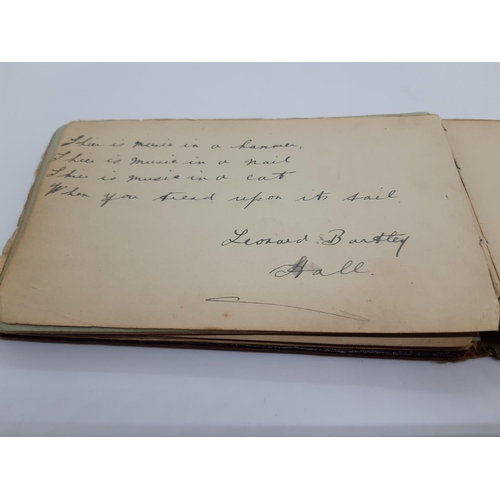 Ther is music in a hammer,
Ther is music in a nail
Ther is music in a cat
When you tread upon its tail.
Leonard Bartley
Hall.